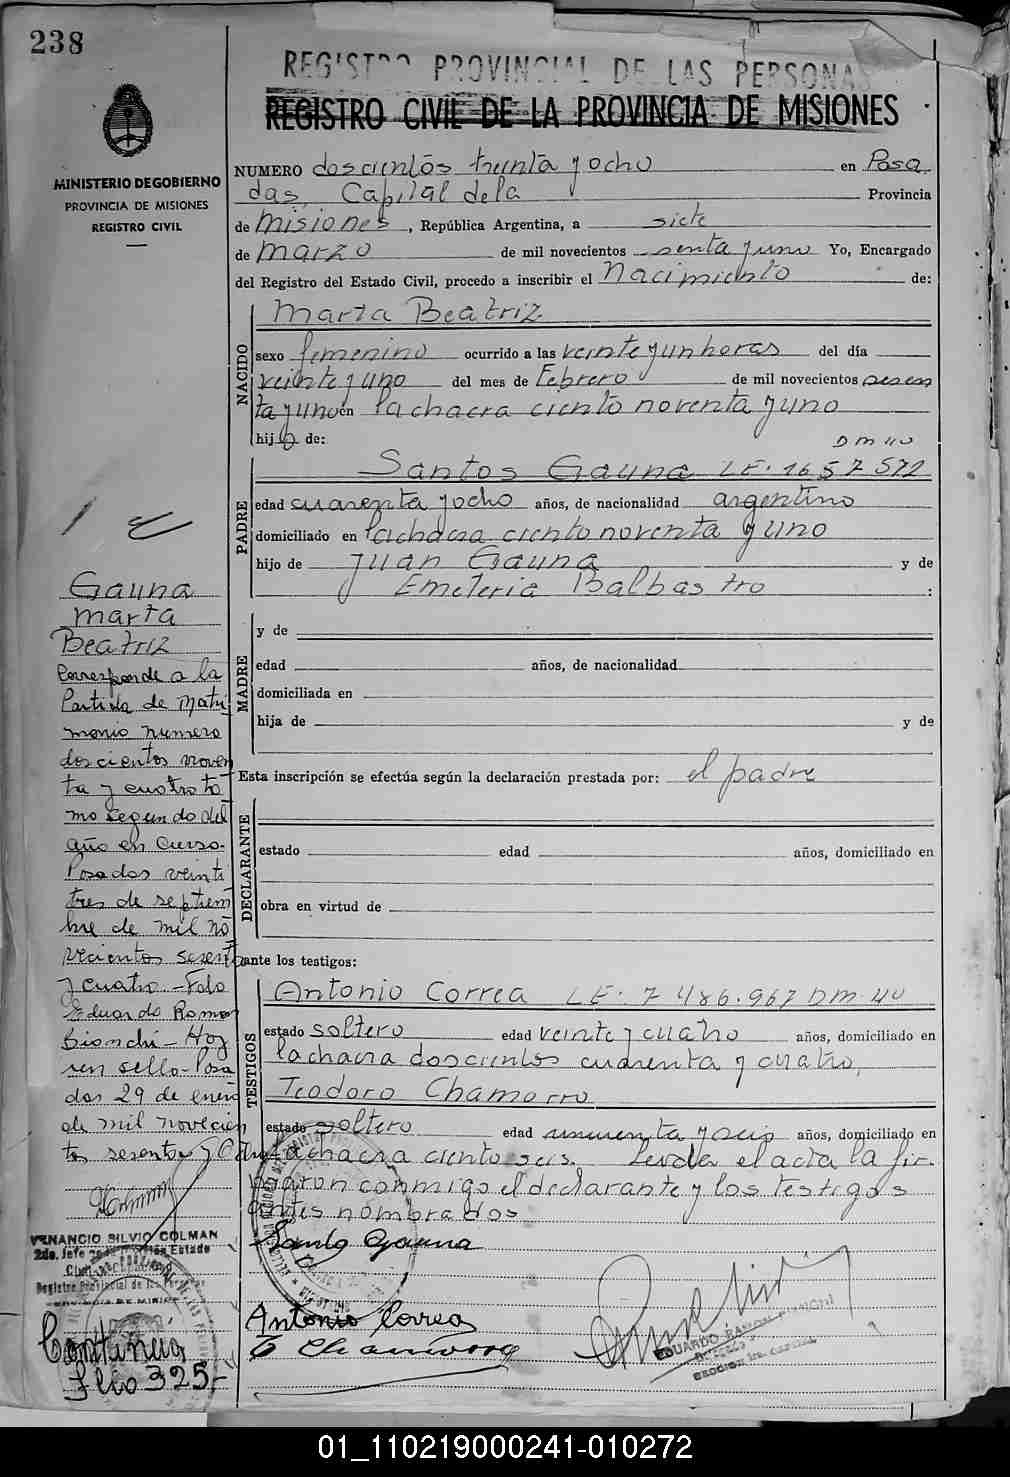 238
REGISTRO PROVINCIAL DE LAS PERSONAS
REGISTRO CIVIL DE LA PROVINCIA DE MISIONES
MINISTERIO DE GOBIERNO
PROVINCIA DE MISIONES
REGISTRO CIVIL
NUMERO doscientos treinta y ocho en Posa
das, Capital de la Provincia
de Misiones, República Argentina, a siete
de Marzo de mil novecientos senta y uno Yo, Encargado
del Registro del Estado Civil, procedo a inscribir el Nacimiento de:
NACIDO
Marta Beatriz
sexo femenino ocurrido a las veinte y un horas del día
veinte y uno del mes de Febrero de mil novecientos sesen
ta y uno en la chacra ciento noventa y uno
hija de:
PADRE
DM 40
Santos Gauna LE. 1657572
edad cuarenta y ocho años, de nacionalidad argentino
domiciliado en la chacra ciento noventa y uno
hijo de Juan Gauna y de
Emeteria Balbastro :
MADRE
y de
edad años, de nacionalidad
domiciliada en
hija de y de
Esta inscripción se efectúa según la declaración prestada por: el padre
DECLARANTE
estado edad años, domiciliado en
obra en virtud de
ante los testigos:
TESTIGOS
Antonio Correa LE. 7486.967 DM 40
estado soltero edad veinte y cuatro años, domiciliado en
la chacra doscientos cuarenta y cuatro,
Teodoro Chamorro
estado soltero edad cincuenta y seis años, domiciliado en
la chacra ciento seis. Leida el acta la fir
maron conmigo el declarante y los testigos
antes nombrados
Santo Gauna
Antonio Correa
T Chamorro
EDUARDO RAMON BIANCHI
Gauna
Marta
Beatriz
Corresponde a la
Partida de Matri
monio numero
doscientos noven
ta y cuatro to
mo segundo del
año en curso.
Posadas veinti
tres de septiem
bre de mil no
vecientos sesenta
y cuatro.-Fdo
Eduardo Ramon
Bianchi - Hay
un sello - Posa
das 29 de enero
de mil novecien
tos sesenta y
VENANCIO SILVIO COLMAN
2do. Jefe
Registro Provincial de las Personas
Continúa
folio 325-
01_110219000241-010272